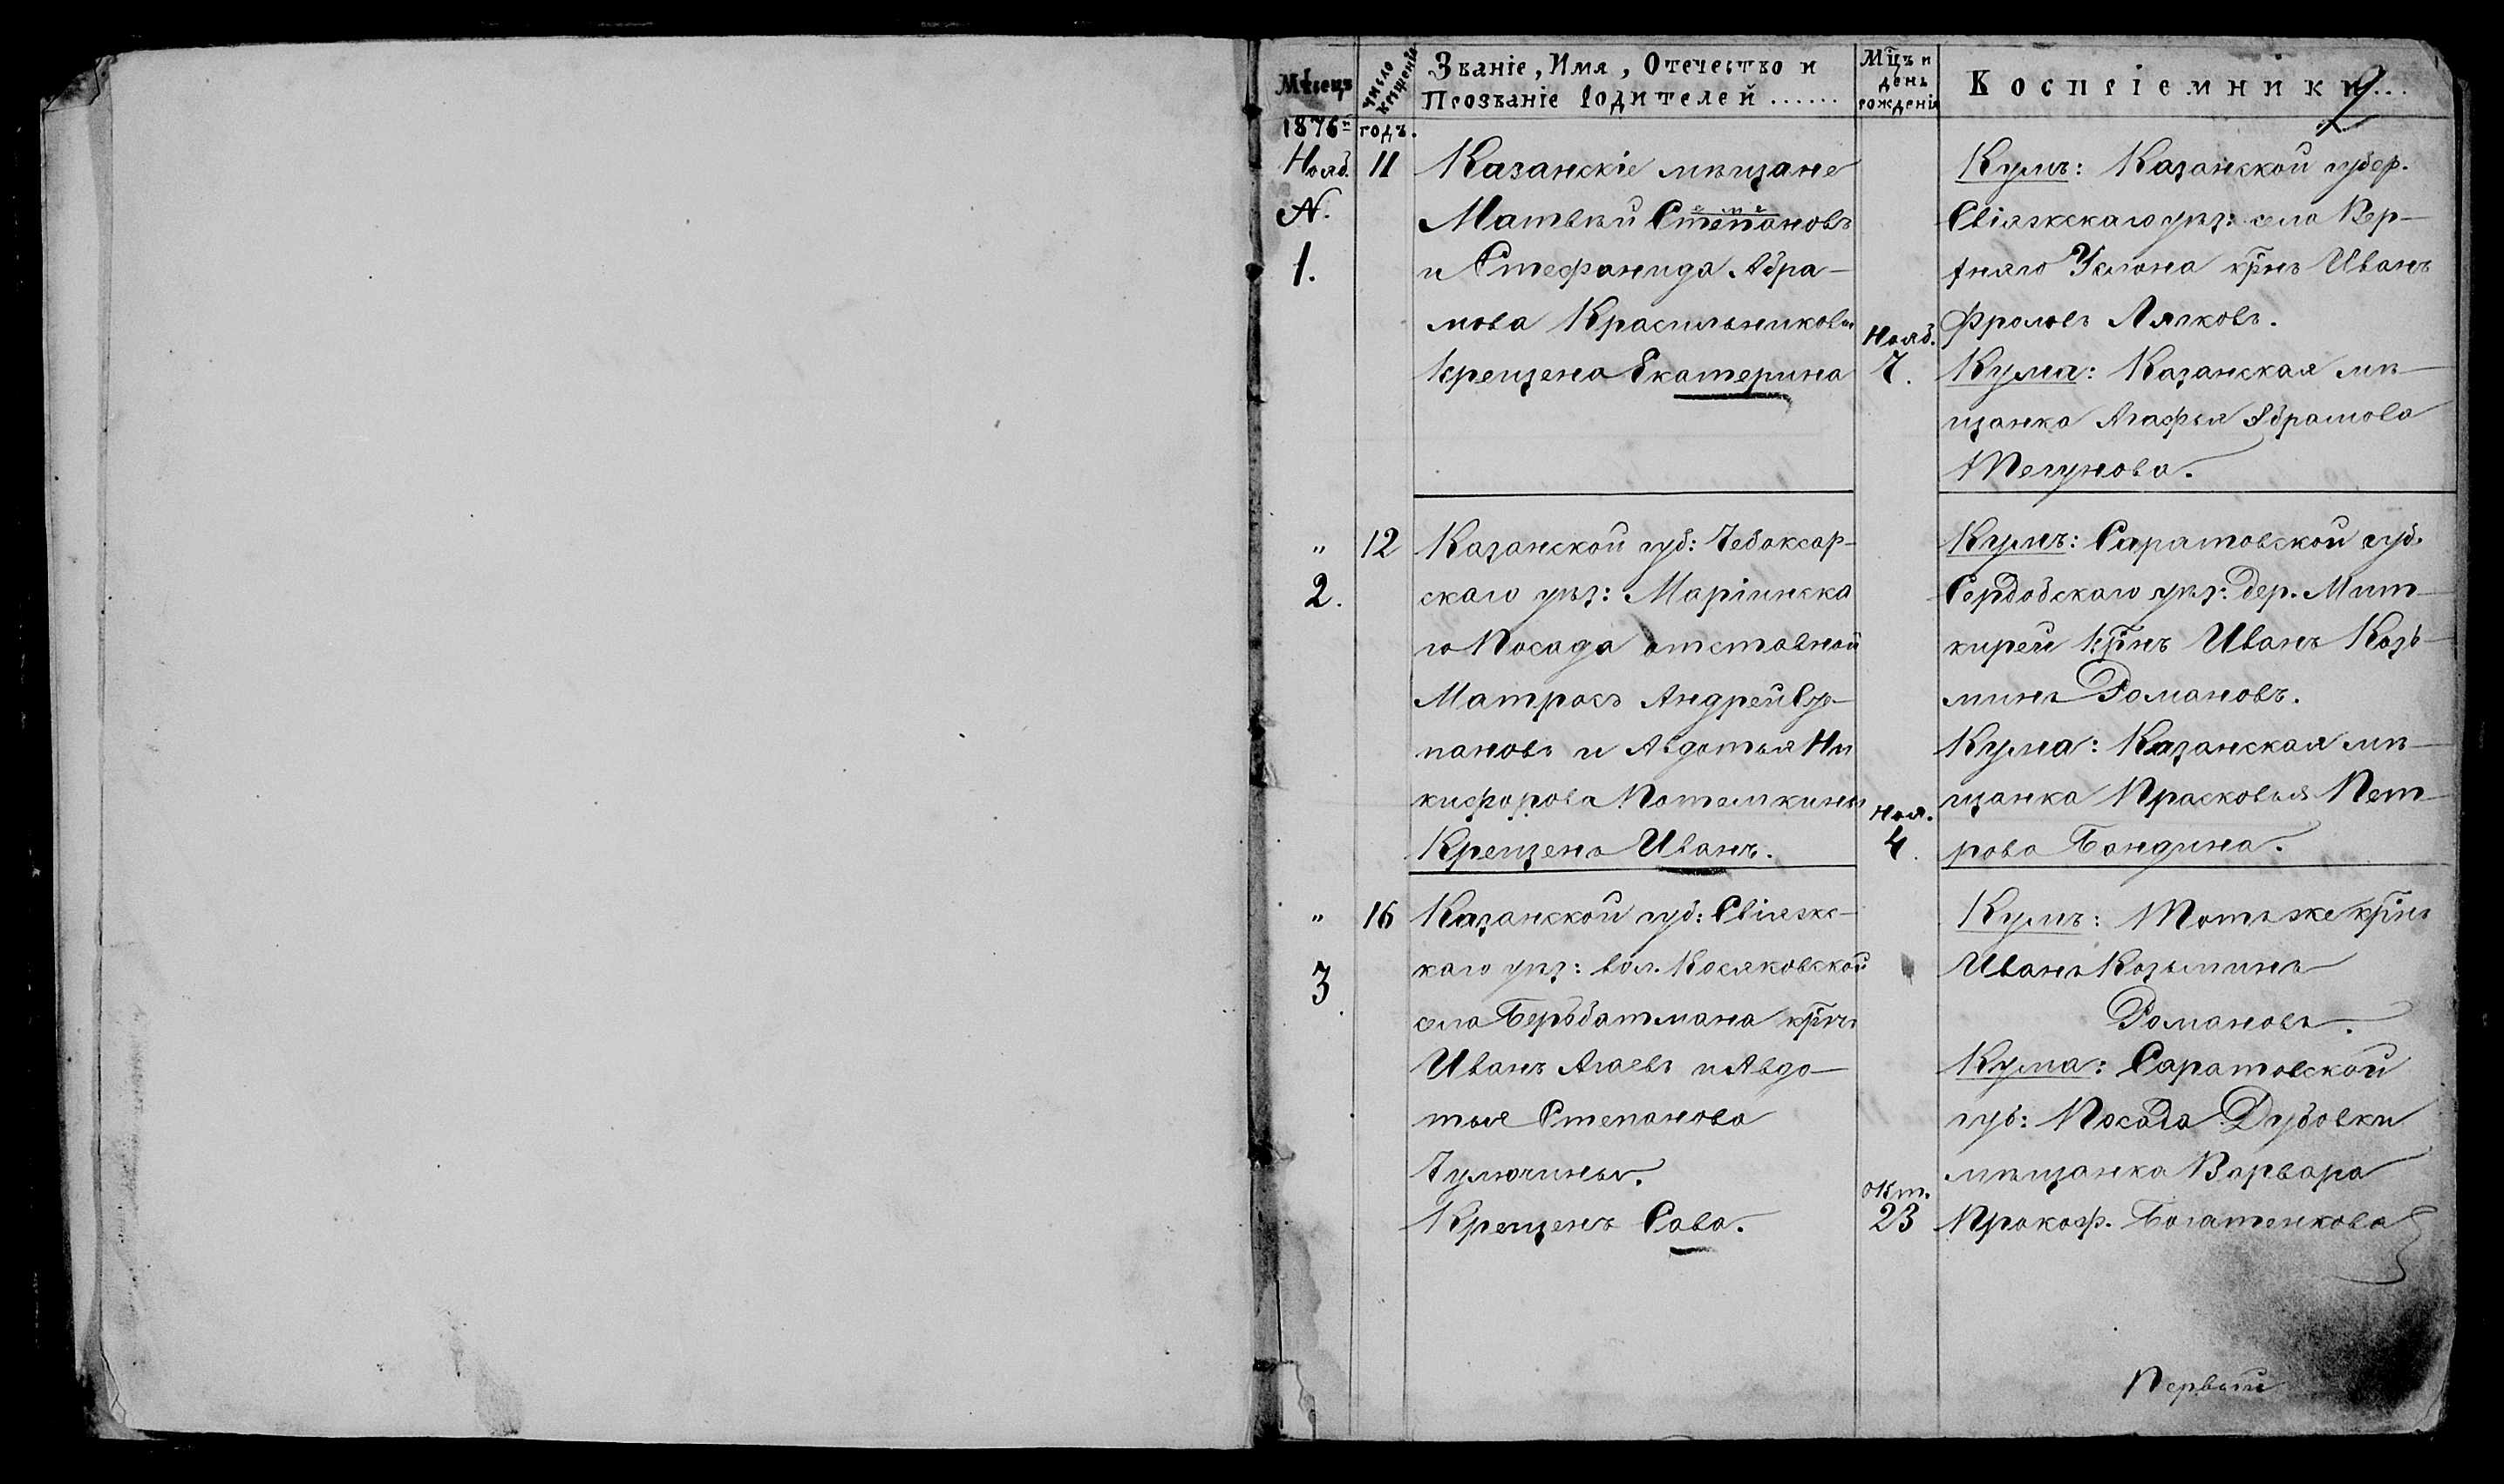 Мѣсяцъ
число крещенія
Званіе, Имя, Отечество и
Прозваніе Родителей ......
Мц̃ъ и день рожденія
Воспріемники...
2
1876й годъ.
Нояб. 11 Казанскіе мѣщане
N. Матвѣй Степановъ
1. и Стефанида Абра-
мова Красильниковы
Крещена Екатерина
Нояб.
7.
Кумъ: Казанской губер.
Свіяжскаго уѣз: села Вер-
хняго Услона кр̃нъ Иванъ
Фроловъ Лячковъ.
Кума: Казанская мѣ-
щанка Агафья Абрамова
Тегунова.
" 12 Казанской губ: Чебоксар-
2. скаго уѣз: Маріинска
го Посада отставной
Матросъ Андрей Сте-
пановъ и Авдотья Ни
кифорова Потемкины
Крещенъ Иванъ.
Ноя.
4.
Кумъ: Саратовской губ.
Сердобскаго уѣз: дер. Мит-
кирей кр̃нъ Иванъ Козь-
минъ Романовъ.
Кума: Казанская мѣ-
щанка Прасковья Пет-
рова Бандина.
" 16 Казанской губ: Свіяжс-
3. каго уѣз: вол. Косяковской
села Бербатмана кр̃нъ
Иванъ Агаевъ и Авдо-
тья Степанова
Чулючины.
Крещенъ Сава.
Окт.
23
Кумъ: Тотъ же кр̃нъ
Иванъ Козьминъ
Романовъ.
Кума: Саратовской
губ: Посада Дубовки
мѣщанка Варвара
Прокоф. Богатенкова
Первый